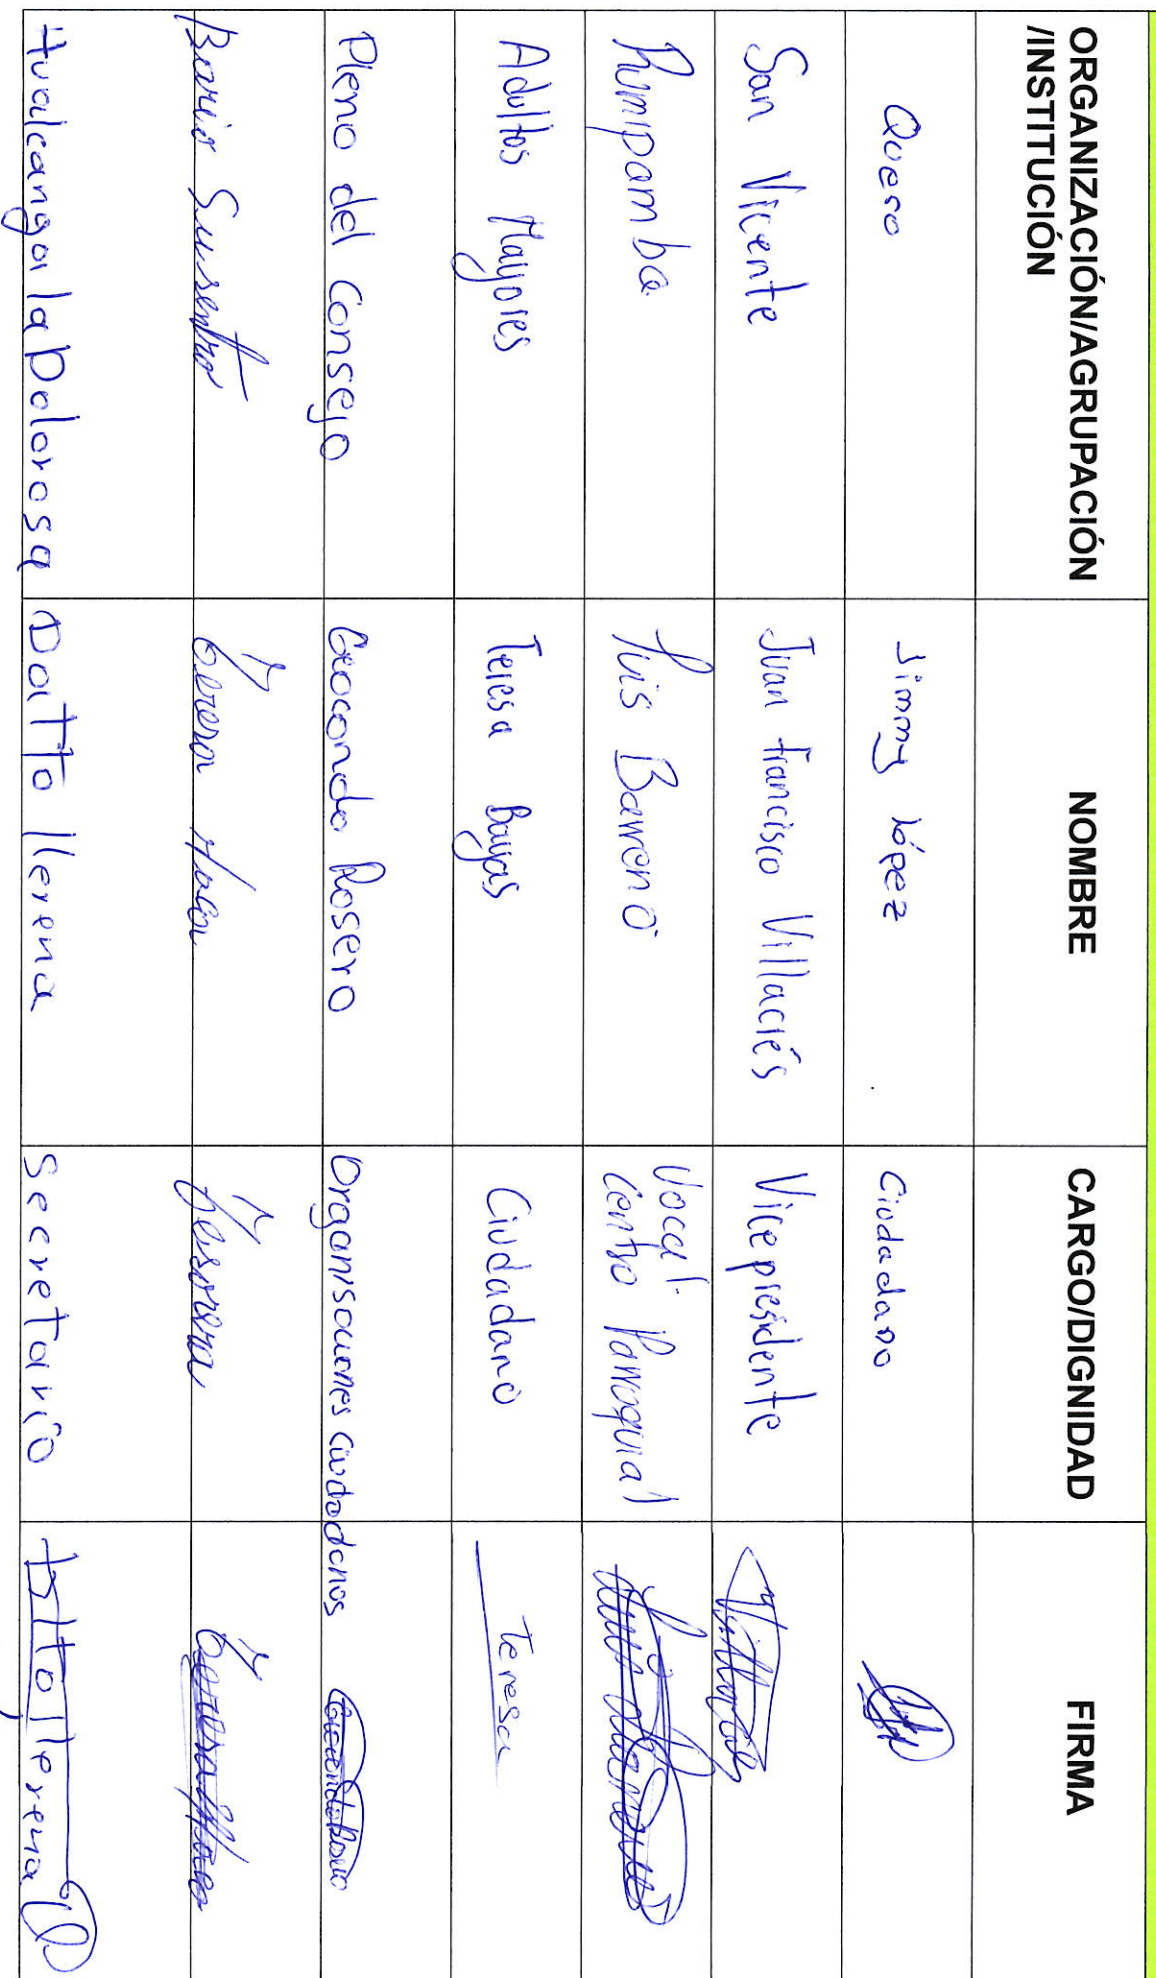 ORGANIZACIÓN/AGRUPACIÓN
/INSTITUCIÓN
NOMBRE
CARGO/DIGNIDAD
FIRMA
Quero
Jimmy López
Ciudadano
San Vicente
Juan Francisco Villaciés
Vicepresidente
Rumipamba
Luis Barreno
Vocal
Centro Parroquial
Adultos Mayores
Teresa Bayas
Ciudadano
Teresa
Pleno del Consejo
Geoconda Rosero
Organisaciones Ciudadanas
Barrio
Secretario
Hualcanga la Dolorosa
Llerena